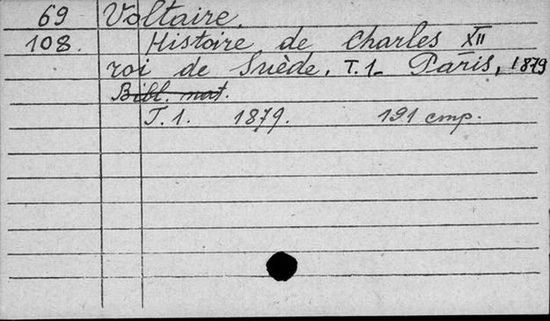 69 Voltaire.
108. Histoire de Charles XII
roi de Suède. T. 1. Paris, 1879
Bibl. nat.
T. 1. 1879. 191 стр.